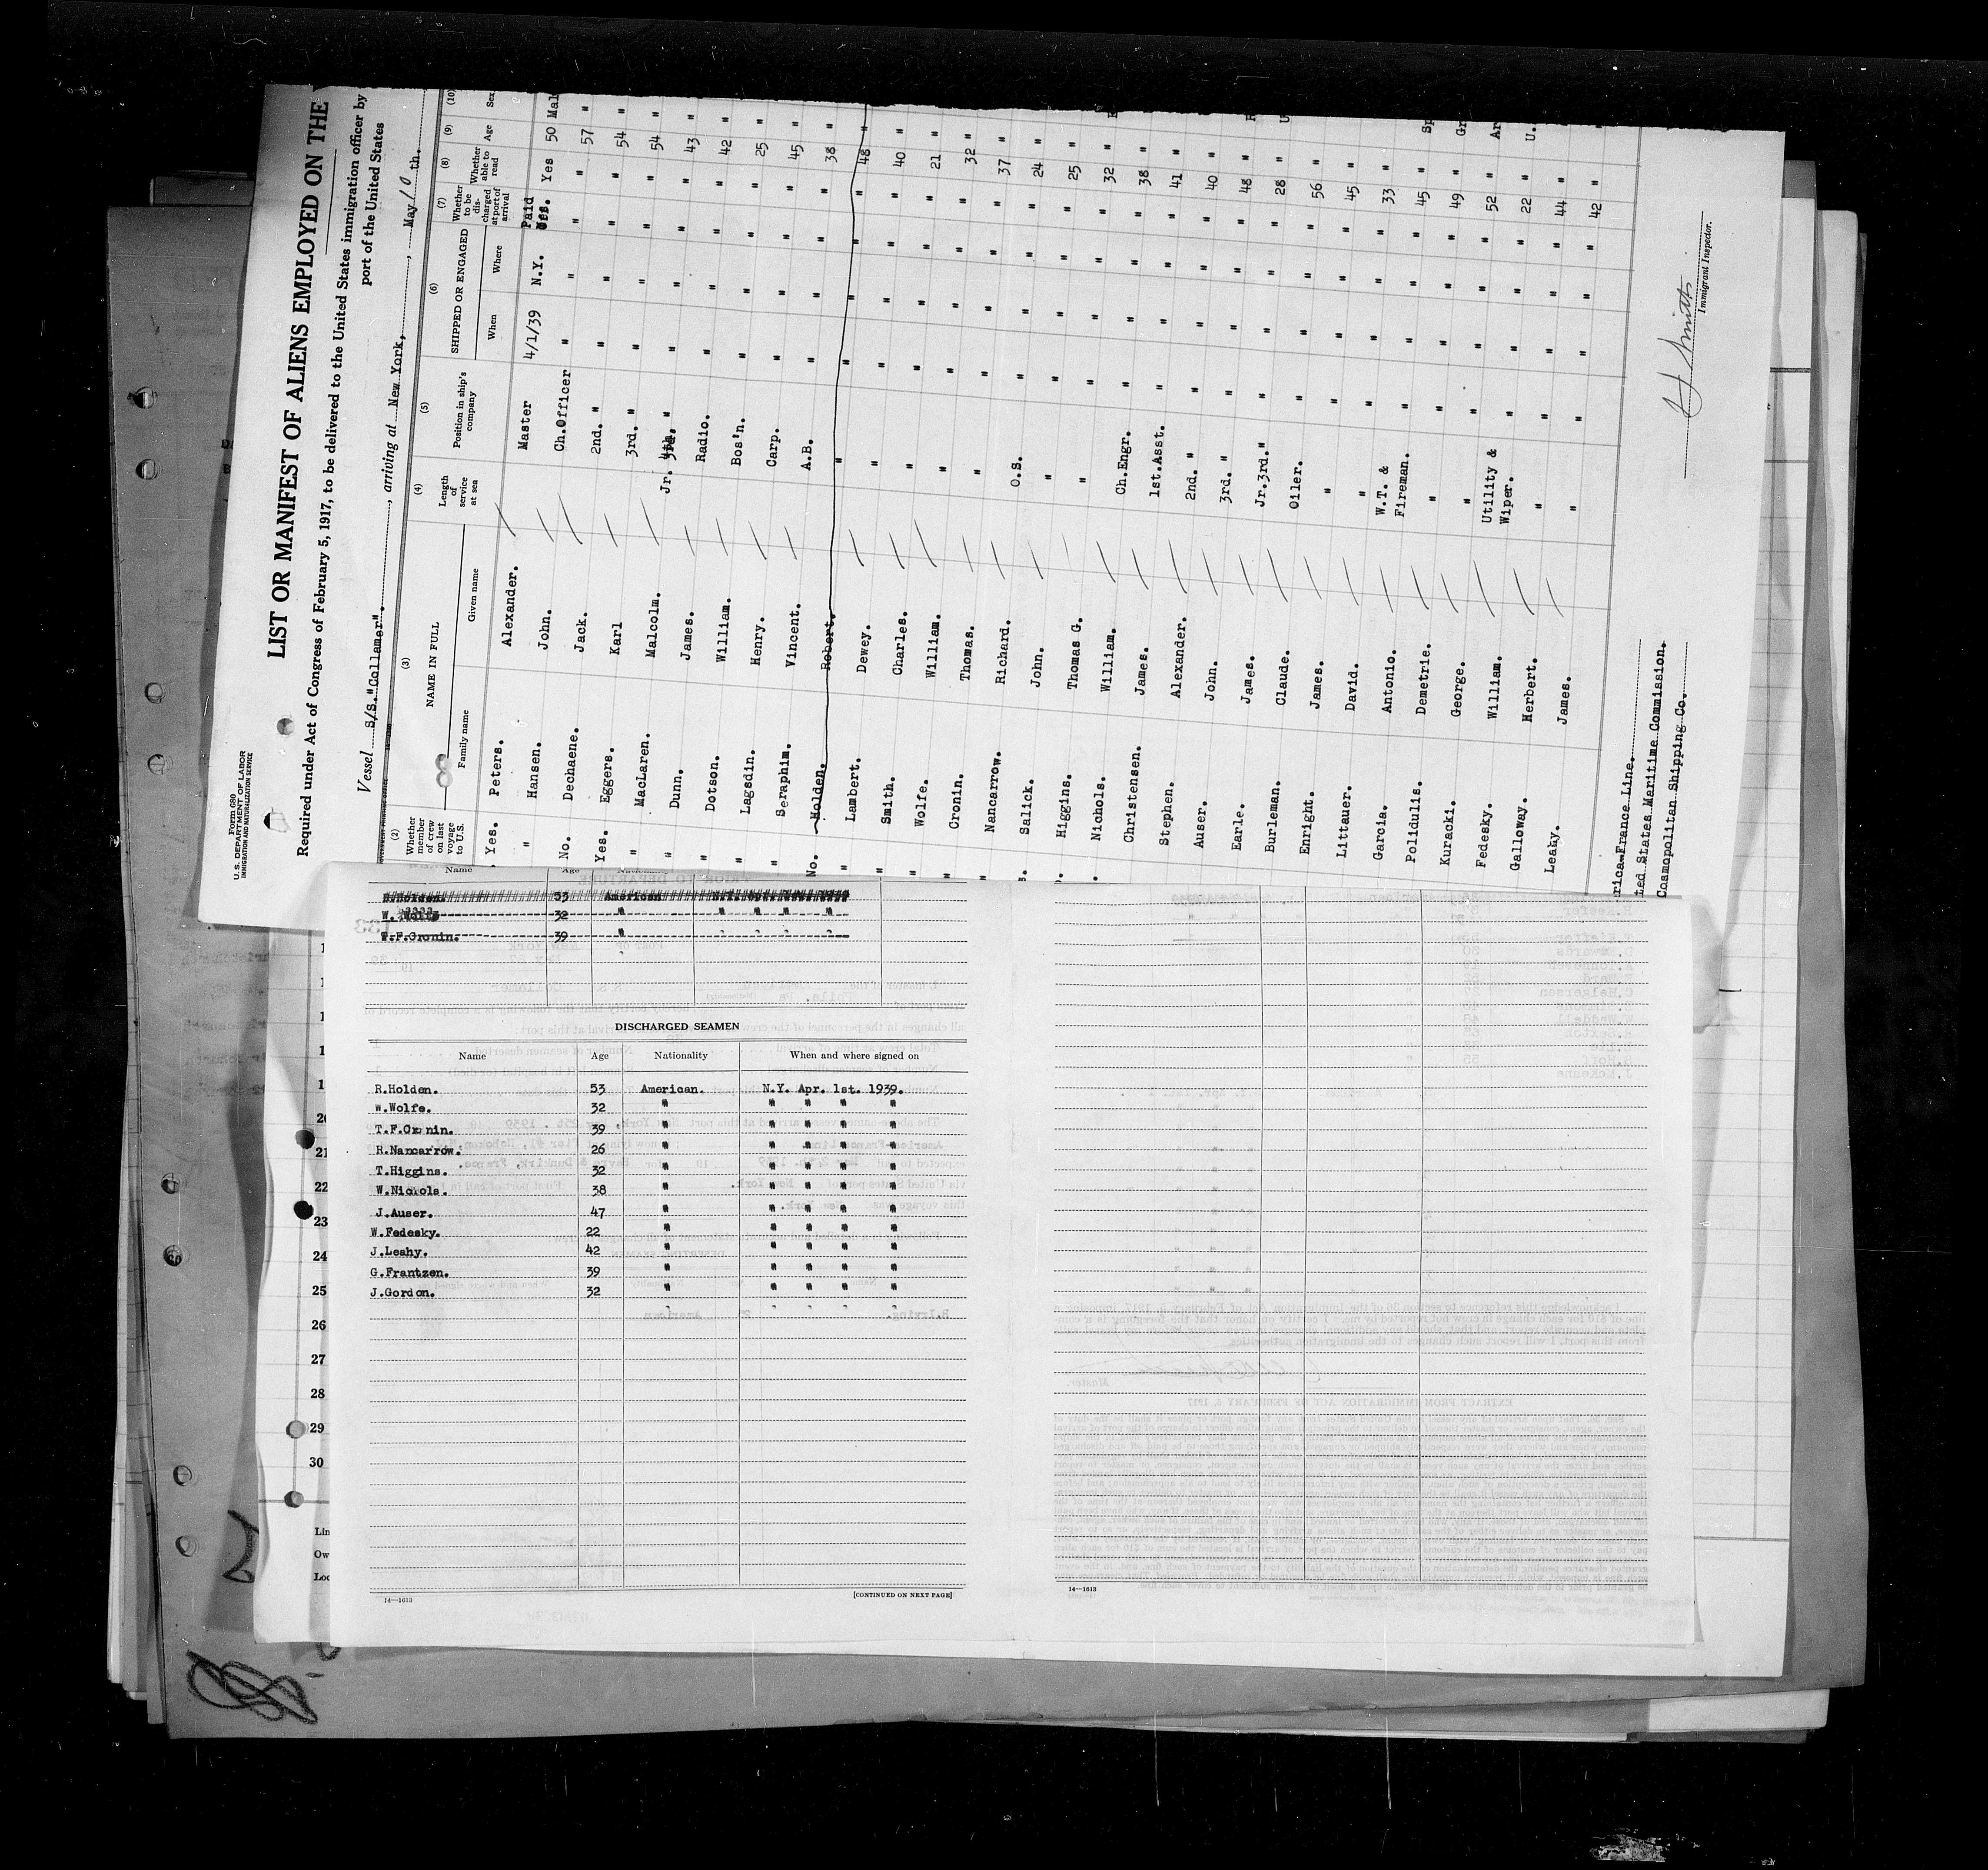 Form 680
U. S. DEPARTMENT OF LABOR
IMMIGRATION AND NATURALIZATION SERVICE
LIST OR MANIFEST OF ALIENS EMPLOYED ON THE
Required under Act of Congress of February 5, 1917, to be delivered to the United States immigration officer by
port of the United States
Vessel S/S."Collamer"., arriving at New York, May 10 th.
(2) (3) (4) (5) (6) (7) (8) (9) (10)
Whether member of crew on last voyage to U.S. NAME IN FULL Length of service at sea Position in ship's company SHIPPED OR ENGAGED Whether to be discharged at port of arrival Whether able to read Age Sex
Family name Given name When Where
Yes. Peters. Alexander. Master 4/1/39 N.Y. Paid Off. Yes 50 Mal
" Hansen. John. Ch.Officer " " " " 57 "
No. Dechaene. Jack. 2nd. " " " " " 54 "
Yes. Eggers. Karl 3rd. " " " " " 54 "
" MacLaren. Malcolm. Jr. 4th. " " " " " 43 "
" Dunn. James. Radio. " " " " 42 "
" Dotson. William. Bos'n. " " " " 25 "
" Lagsdin. Henry. Carp. " " " " 45 "
" Seraphim. Vincent. A.B. " " " " 38 "
No. Holden. Robert. " " " " " 48 "
" Lambert. Dewey. " " " " " 40 "
" Smith. Charles. " " " " " 21 "
" Wolfe. William. " " " " " 32 "
" Cronin. Thomas. " " " " " 37 "
" Nancarrow. Richard. O.S. " " " " 24 "
Salick. John. " " " " " 25 "
Higgins. Thomas G. " " " " " 32 "
Nichols. William. Ch.Engr. " " " " 38 "
Christensen. James. 1st.Asst. " " " " 41 "
Stephen. Alexander. 2nd. " " " " " 40 "
Auser. John. 3rd. " " " " " 48 "
Earle. James. Jr.3rd." " " " " 28 "
Burleman. Claude. Oiler. " " " " 56 "
Enright. James. " " " " " 45 "
Littauer. David. " " " " " 33 "
Garcia. Antonio. W.T. & Fireman. " " " " 45 " Sp
Polidulis. Demetrie. " " " " " 49 " Gr
Kuracki. George. " " " " " 52 " Ar
Fedesky. William. Utility & Wiper. " " " " 22 " U.
Galloway. Herbert. " " " " " 44 "
Leahy. James. " " " " " 42 "
rica-France Line.
ted States Maritime Commission.
Cosmopolitan Shipping Co.
Immigrant Inspector.
Name Age
R.Holden. 53 American
W. Wolfe 32 " " " " "
T.F.Cronin. 39 "
DISCHARGED SEAMEN
Name Age Nationality When and where signed on
R.Holden. 53 American. N.Y. Apr. 1st. 1939.
W.Wolfe. 32 " " " " "
T.F.Cronin. 39 " " " " "
R.Nancarrow. 26 " " " " "
T.Higgins. 32 " " " " "
W.Nichols. 38 " " " " "
J.Auser. 47 " " " " "
W.Fedesky. 22 " " " " "
J.Leahy. 42 " " " " "
G.Frantzen. 39 " " " " "
J.Gordon. 32 " " " " "
14—1613
[CONTINUED ON NEXT PAGE]
14—1613
20
21
22
23
24
25
26
27
28
29
30
Lin
Ow
Loc